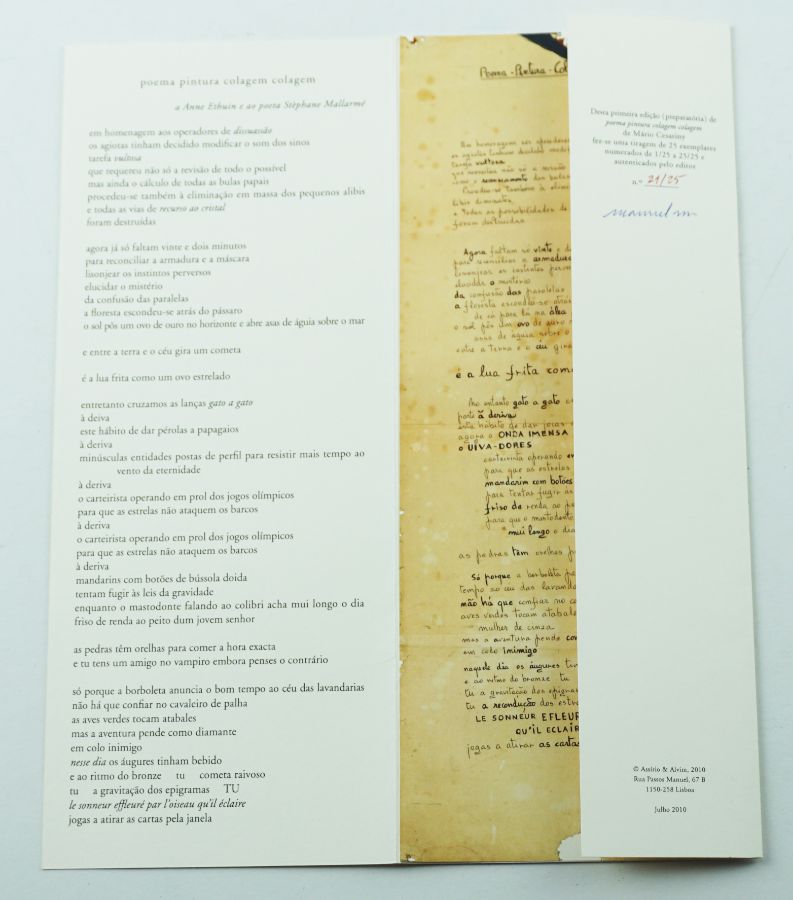 poema pintura colagem colagem
a Anne Ethuin e ao poeta Stéphane Mallarmé
em homenagem aos operadores de dissuasão
os agiotas tinham decidido modificar o som dos sinos
tarefa vultosa
que requereu não só a revisão de todo o possível
mas ainda o cálculo de todas as bulas papais
procedeu-se também à eliminação em massa dos pequenos alibis
e todas as vias de recurso ao cristal
foram destruídas
agora já só faltam vinte e dois minutos
para reconciliar a armadura e a máscara
lisonjear os instintos perversos
elucidar o mistério
da confusão das paralelas
a floresta escondeu-se atrás do pássaro
o sol pôs um ovo de ouro no horizonte e abre asas de águia sobre o mar
e entre a terra e o céu gira um cometa
é a lua frita como um ovo estrelado
entretanto cruzamos as lanças gato a gato
à deiva
este hábito de dar pérolas a papagaios
à deriva
minúsculas entidades postas de perfil para resistir mais tempo ao
vento da eternidade
à deriva
o carteirista operando em prol dos jogos olímpicos
para que as estrelas não ataquem os barcos
à deriva
o carteirista operando em prol dos jogos olímpicos
para que as estrelas não ataquem os barcos
à deriva
mandarins com botões de bússola doida
tentam fugir às leis da gravidade
enquanto o mastodonte falando ao colibri acha mui longo o dia
friso de renda ao peito dum jovem senhor
as pedras têm orelhas para comer a hora exacta
e tu tens um amigo no vampiro embora penses o contrário
só porque a borboleta anuncia o bom tempo ao céu das lavandarias
não há que confiar no cavaleiro de palha
as aves verdes tocam atabales
mas a aventura pende como diamante
em colo inimigo
nesse dia os áugures tinham bebido
e ao ritmo do bronze tu cometa raivoso
tu a gravitação dos epigramas TU
le sonneur effleuré par l'oiseau qu'il éclaire
jogas a atirar as cartas pela janela
Poema - Pintura - Col
Em homenagem aos operadores
os agiotas tinham decidido
tarefa vultosa
que não só a revisão
como o das bulas
Procedeu-se também à elim
e todas as possibilidades de
foram destruídas
Agora faltam só vinte e d
para reconciliar a armadura
lisonjear os instintos
elucidar o mistério
da confusão das paralelas
a floresta escondeu-se atrás
de cá para lá na álea
o sol pôs um ovo de ouro
asas de águia sobre o
entre a terra e o céu gira
é a lua frita com
No entanto gato a gato
à deriva
este hábito de dar joias
agora o ONDA IMENSA
o UIVA-DORES
carteirista operando
para que as estrelas
mandarim com botões
para tentar fugir às
friso de renda ao pe
para que o mastodonte
mui longo o dia
as pedras têm orelhas p
Só porque a borboleta
tempo ao céu das lavanda
não há que confiar no ca
aves verdes tocam atabale
mulher de cinza
mas a aventura pende com
em colo inimigo
naquele dia os áugures tin
e ao ritmo do bronze tu
tu a gravitação dos epigra
tu a recondução dos estre
LE SONNEUR EFLEUR
QU'IL ECLAIR
jogas a atirar as cartas
Desta primeira edição (preparatória) de
poema pintura colagem colagem
de Mário Cesariny
fez-se uma tiragem de 25 exemplares
numerados de 1/25 a 25/25 e
autenticados pelo editor
n.º 21/25
© Assírio & Alvim, 2010
Rua Passos Manuel, 67 B
1150-258 Lisboa
Julho 2010